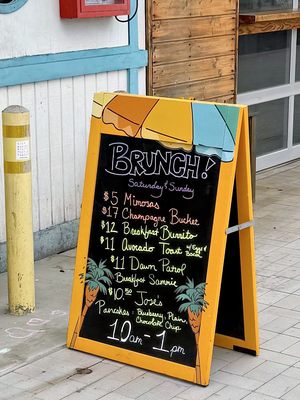 BRUNCH!
Saturday & Sunday
$5 Mimosas
$17 Champagne Bucket
$12 Breakfast Burrito
$11 Avocado Toast w/ Egg & Bacon
$11 Dawn Patrol
Breakfast Sammie
$10.50 Jose's
Pancakes - Blueberry, Plain,
Chocolate Chip
10am - 1pm